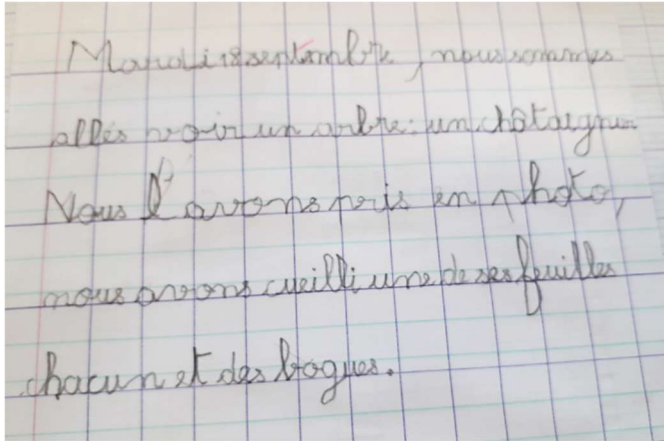 Mardi 18 septembre, nous sommes
allés voir un arbre : un châtaignier
Nous l'avons pris en photo,
nous avons cueilli une de ses feuilles
chacun et des bogues.